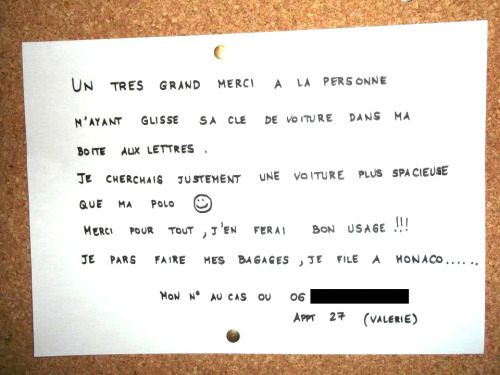 UN TRES GRAND MERCI A LA PERSONNE
M'AYANT GLISSE SA CLE DE VOITURE DANS MA
BOITE AUX LETTRES.
JE CHERCHAIS JUSTEMENT UNE VOITURE PLUS SPACIEUSE
QUE MA POLO
MERCI POUR TOUT, J'EN FERAI BON USAGE !!!
JE PARS FAIRE MES BAGAGES, JE FILE A MONACO.....
MON N° AU CAS OU 06
APPT 27 (VALERIE)